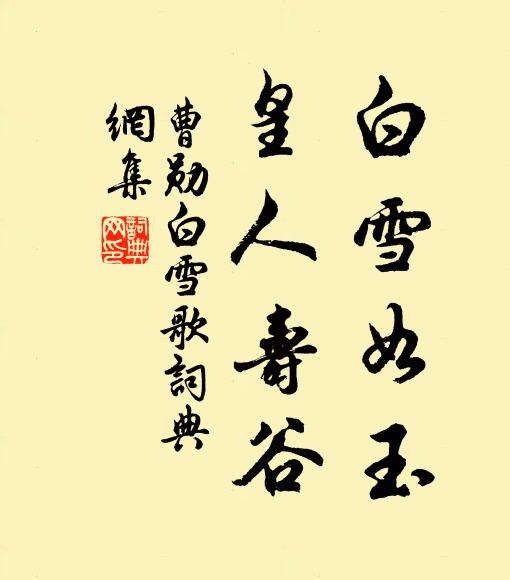 白雪如玉
皇人壽谷
曹勛白雪歌詞典
網集
詞典
網印